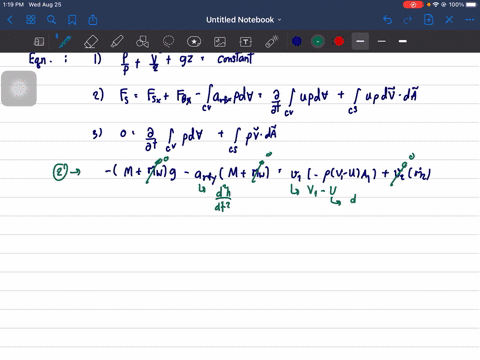 1:19 PM Wed Aug 25
100%
Untitled Notebook
Eqn. : 1) P/ρ + V²/2 + gz = constant
2) Fs = Fsx + FBx - ∫cv arfx ρd∀ = ∂/∂t ∫cv uρd∀ + ∫cs uρd V⃗ · dA⃗
3) 0 = ∂/∂t ∫cv ρd∀ + ∫cs ρV⃗ · dA⃗
(2) → -( M + mw)g - arfy ( M + mw) = v1 ( -ρ(V1-U)A1) + v2 (ṁ2)
0 0 0
↳ d²h/dt² ↳ V1 - U
↳ d